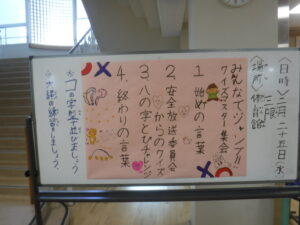 〈日時〉二月二十五日(水)
三限
〈場所〉体育館
みんなでジャンプ!!
クイズラスター集会
1. 始めの言葉
2. 安全放送委員会
からのクイズ
3. 八の字とびチャレンジ
4. 終わりの言葉
☆コの字型で並びましょう